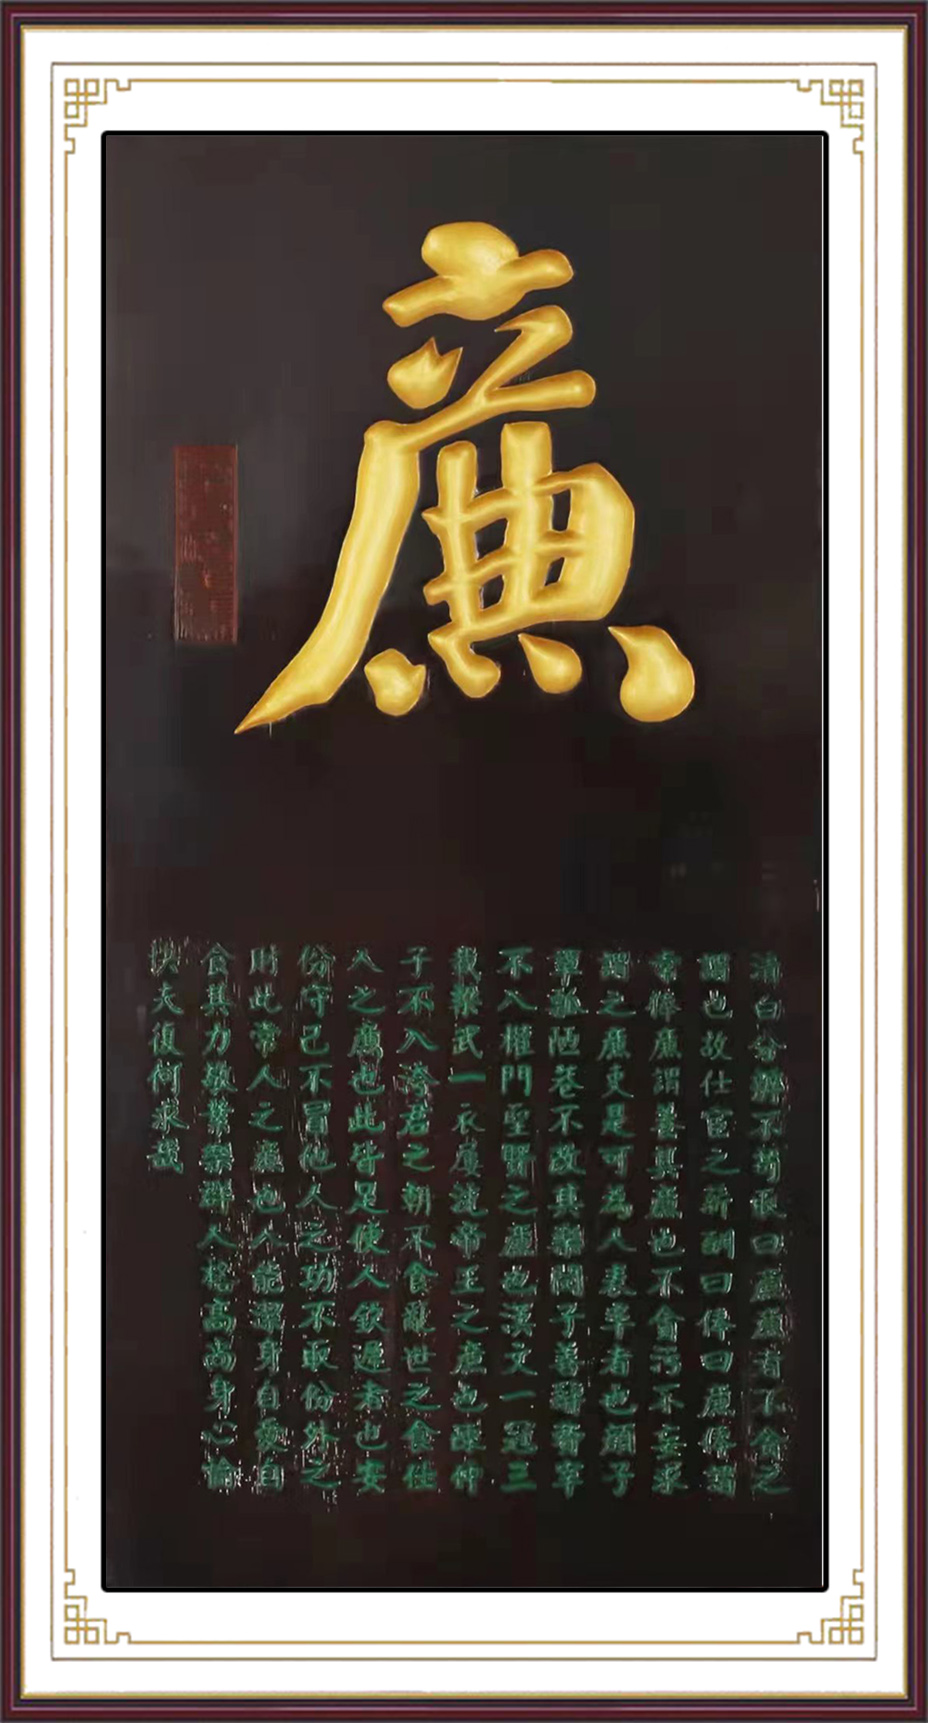 廉
清白分辨不苟取曰廉廉有不貪之
謂也故仕宦之薪酬曰俸曰廉俸謂
常俸廉謂養其廉也不會污不妄采
謂之廉吏是可為人表率者也顏子
簞瓢陋巷不改其樂閔子善辭費宰
不入權門聖賢之廉也漢文一冠三
載梁武一衣屢浣帝王之廉也陳仲
子不入洿君之朝不食亂世之食仕
人之廉也此皆足使人欽遲者也安
份守己不冒他人之功不取份外之
財此常人之廉也人能潔身自愛自
食其力敬業樂群人格高尚身心愉
快夫復何求哉